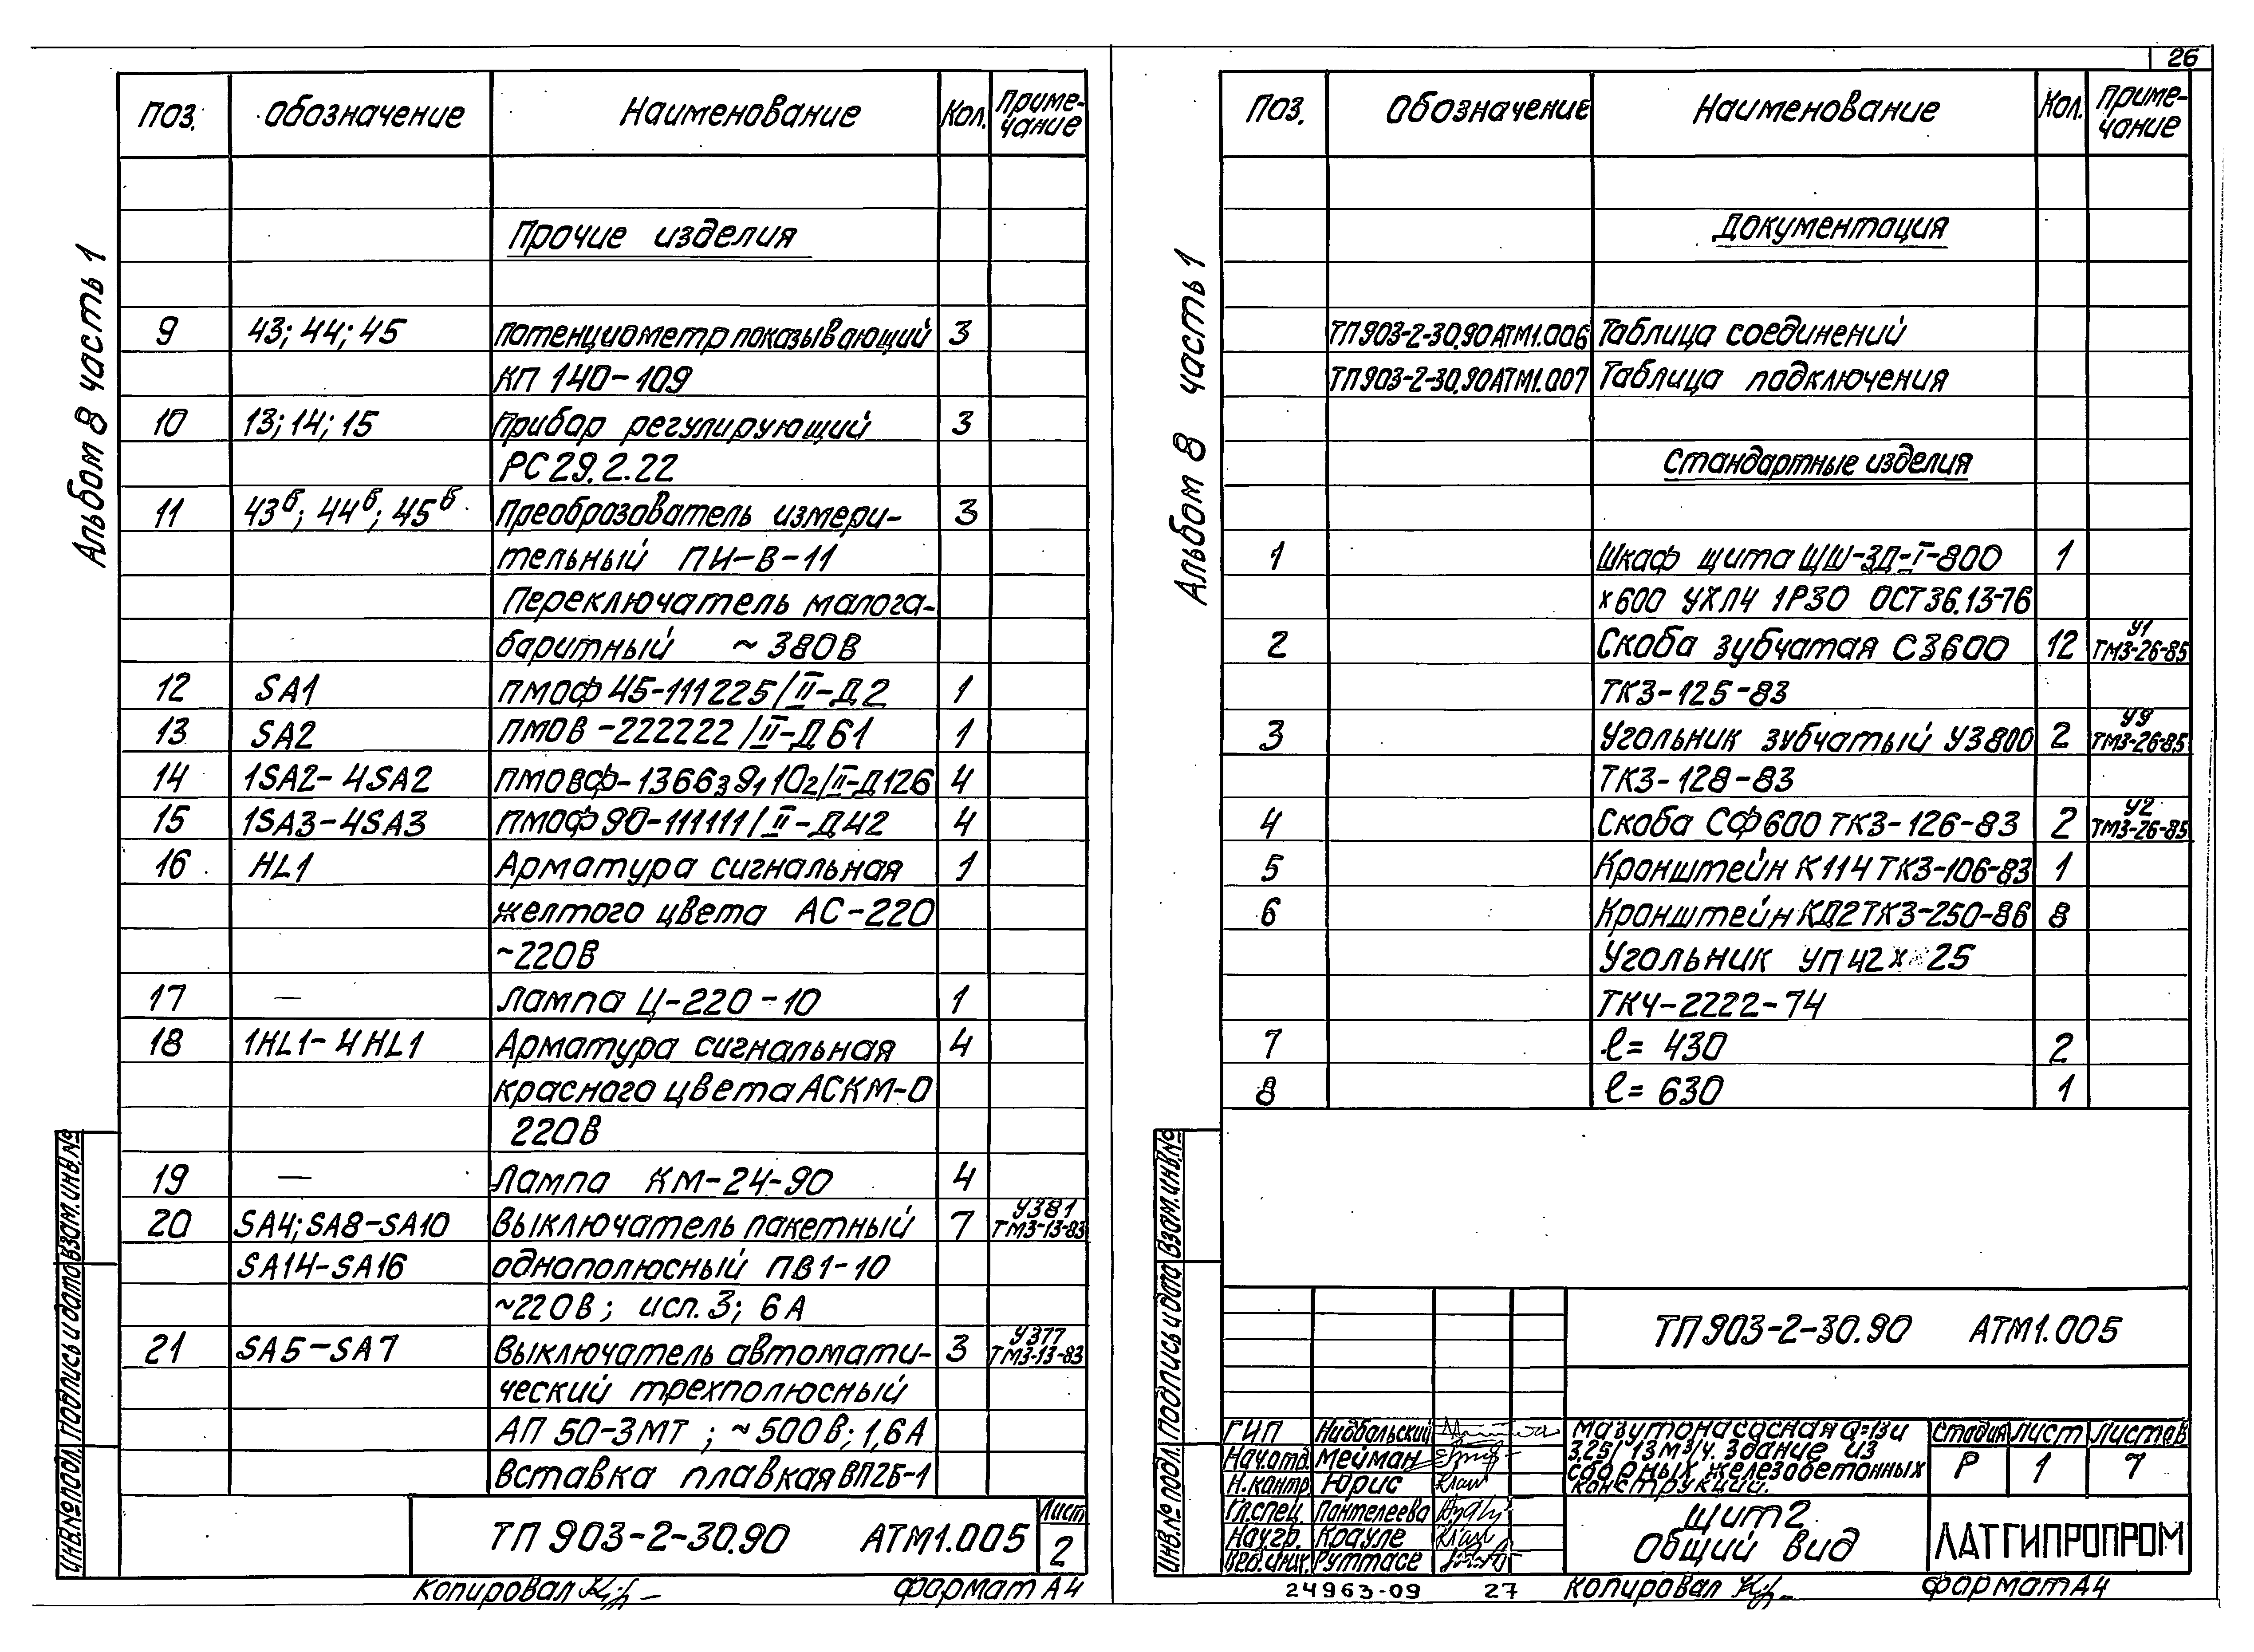 Альбом 8 часть 1
Поз. Обозначение Наименование Кол. Приме-
чание
Прочие изделия
9 43; 44; 45 Потенциометр показывающий 3
КП 140-109
10 13; 14; 15 Прибор регулирующий 3
РС 29.2.22
11 43б; 44б; 45б Преобразователь измери- 3
тельный ПИ-В-11
Переключатель малога-
баритный ~ 380В
12 SA1 ПМОФ 45-111225/II-Д2 1
13 SA2 ПМОВ-222222/II-Д61 1
14 1SA2-4SA2 ПМОВФ-1366з9,10г/II-Д126 4
15 1SA3-4SA3 ПМОФ90-111111/II-Д42 4
16 HL1 Арматура сигнальная 1
желтого цвета АС-220
~220В
17 — Лампа Ц-220-10 1
18 1HL1-4HL1 Арматура сигнальная 4
красного цвета АСКМ-0
220В
19 — Лампа КМ-24-90 4
20 SA4; SA8-SA10 Выключатель пакетный 7 У381
ТМ3-13-83
SA14-SA16 однополюсный ПВ1-10
~220В; исп. 3; 6А
21 SA5-SA7 Выключатель автомати- 3 У377
ТМ3-13-83
ческий трехполюсный
АП 50-3МТ; ~500В; 1,6А
Вставка плавкая ВП2Б-1
ТП 903-2-30.90 АТМ1.005
Лист
2
Инв.№ подл. Подпись и дата Взам.инв.№
Копировал
формат А4
26
Альбом 8 часть 1
Поз. Обозначение Наименование Кол. Приме-
чание
Документация
ТП903-2-30.90 АТМ1.006 Таблица соединений
ТП903-2-30.90 АТМ1.007 Таблица подключения
Стандартные изделия
1 Шкаф щита ЩШ-ЗД-I-800 1
х600 УХЛ4 1Р30 ОСТ36.13-76
2 Скоба зубчатая СЗ600 12 У1
ТМ3-26-85
ТК3-125-83
3 Угольник зубчатый УЗ800 2 У9
ТМ3-26-85
ТК3-128-83
4 Скоба СФ600 ТК3-126-83 2 У2
ТМ3-26-85
5 Кронштейн К114 ТК3-106-83 1
6 Кронштейн КД2 ТК3-250-86 8
Угольник УП 42х25
ТК4-2222-74
7 ℓ= 430 2
8 ℓ= 630 1
Инв.№ подл. Подпись и дата Взам.инв.№
ТП903-2-30.90 АТМ1.005
ГИП Нидбальский
Нач.отд. Мейман
Н.контр. Юрис
Гл.спец. Пантелеева
Нач.гр. Крауле
Вед.инж. Руттасе
Мазутонасосная Q=13и
3,25/13м³/ч. Здание из
сборных железобетонных
конструкций.
Стадия Лист Листов
Р 1 7
Щит 2
Общий вид
ЛАТГИПРОПРОМ
24963-09 27
Копировал
формат А4